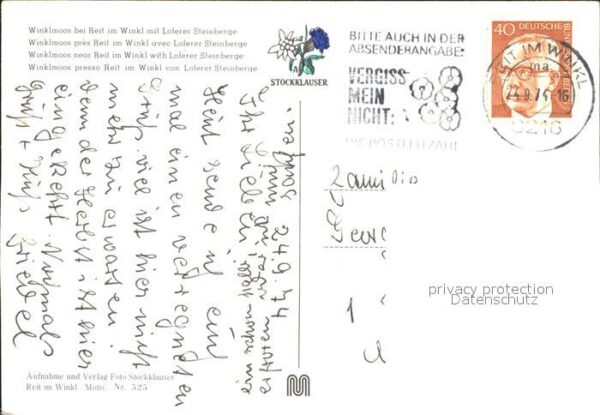 Winklmoos bei Reit im Winkl mit Loferer Steinberge
Winklmoos près Reit im Winkl avec Loferer Steinberge
Winklmoos near Reit im Winkl with Loferer Steinberge
Winklmoos presso Reit im Winkl con Loferer Steinberge
STOCKKLAUSER
BITTE AUCH IN DER
ABSENDERANGABE:
VERGISS
MEIN
NICHT:
DIE POSTLEITZAHL
40 DEUTSCHE BUN
REIT IM WINKL
ma
24.9.74-16
8216
24.9.74
Ihr Lieben
Heut sende ich ein
mal einen verregneten
Gruß. viel ist hier nicht
mehr zu erwarten
denn der Herbst ist hier
eingekehrt. Nochmals
Gruß + Kuß Friedel
Familie
Geor
privacy protection
Datenschutz
Aufnahme und Verlag Foto Stockklauser
Reit im Winkl - Motiv Nr. 525